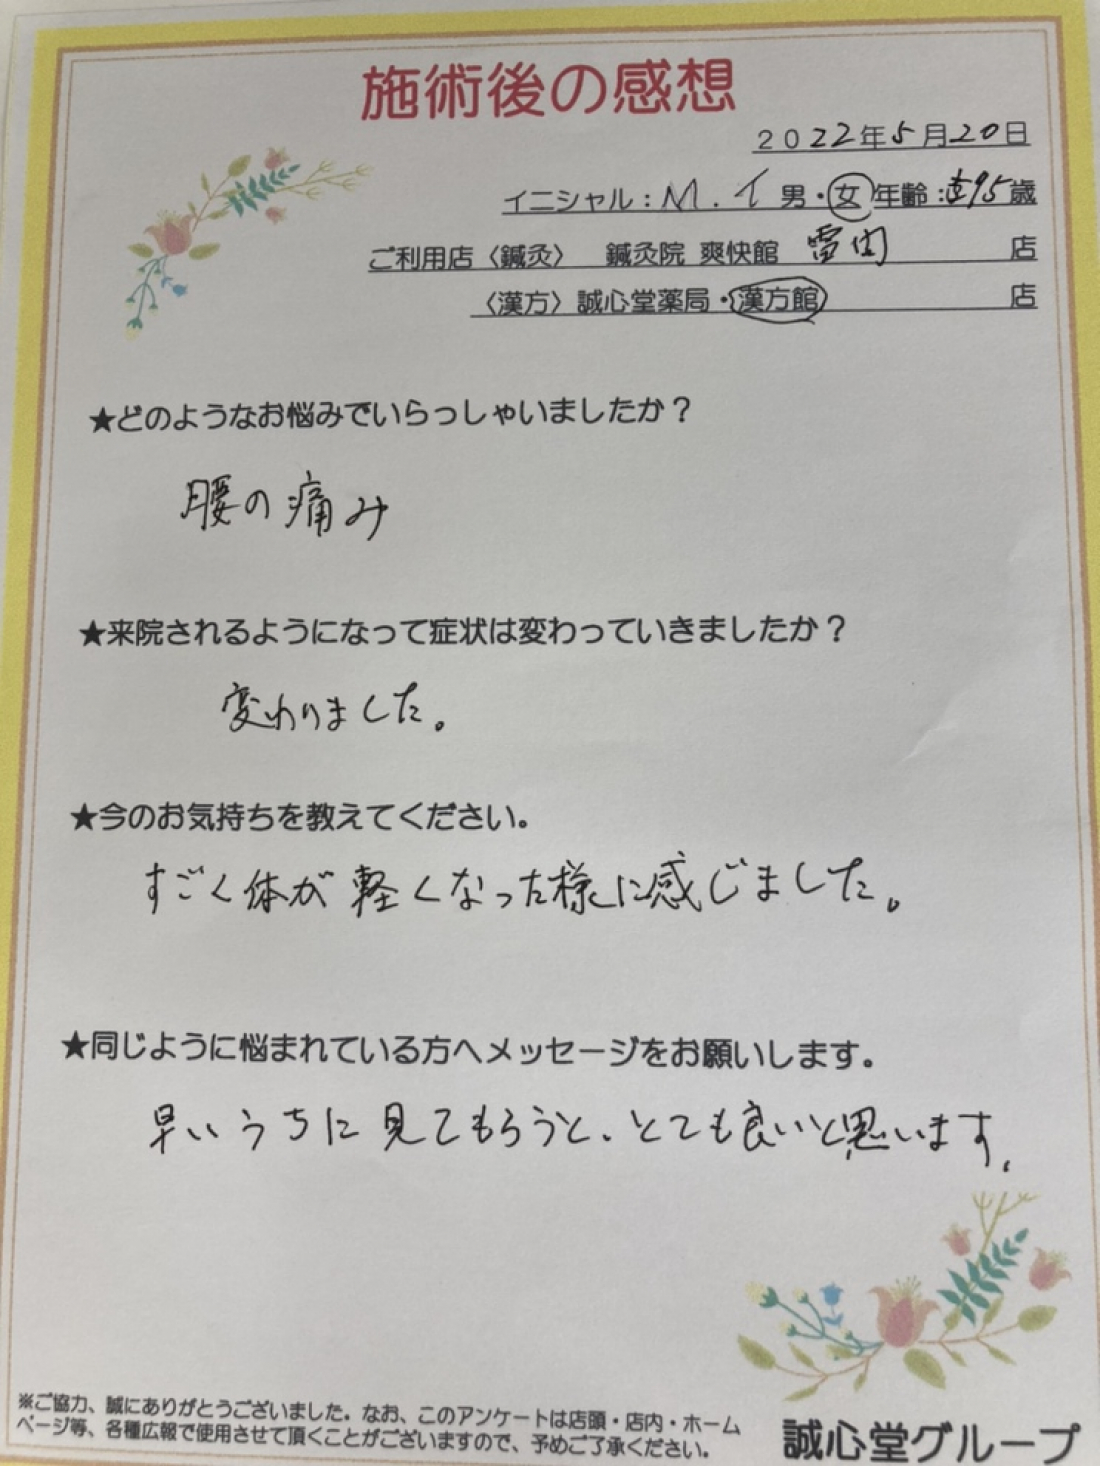 施術後の感想
2022年5月20日
イニシャル：M.イ 男・女 年齢：95歳
ご利用店〈鍼灸〉 鍼灸院 爽快館 店
〈漢方〉誠心堂薬局・漢方館 店
★どのようなお悩みでいらっしゃいましたか？
腰の痛み
★来院されるようになって症状は変わっていきましたか？
変わりました。
★今のお気持ちを教えてください。
すごく体が軽くなった様に感じました。
★同じように悩まれている方へメッセージをお願いします。
早いうちに見てもらうと、とても良いと思います。
※ご協力、誠にありがとうございました。なお、このアンケートは店頭・店内・ホーム
ページ等、各種広報で使用させて頂くことがございますので、予めご了承ください。
誠心堂グループ